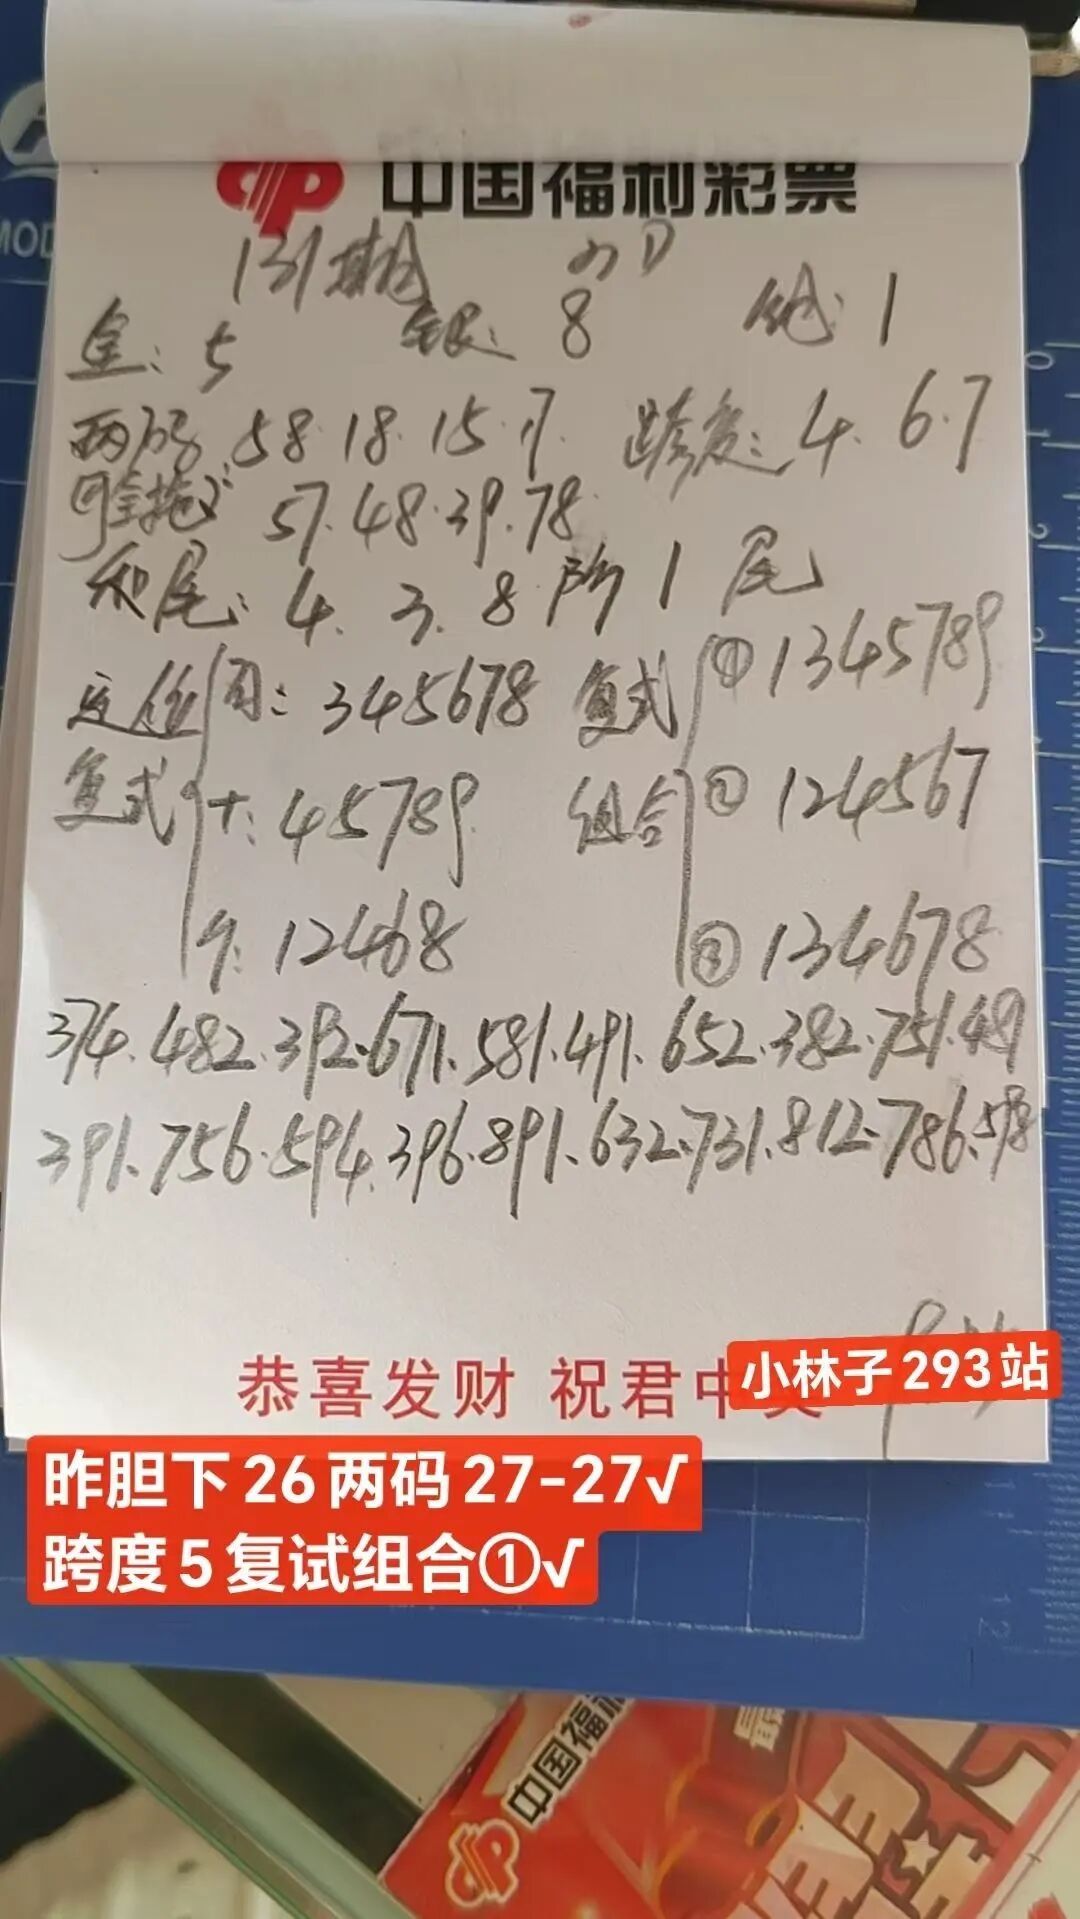 中国福利彩票
131期 3D
金:5 银:8 胆:1
两码 58·18·15·17· 跨度:4·6·7
57·48·39·78
和尾:4·3·8 防1尾
定位 百:345678 复式 ①1345789
复式 十:45789 组合 ②124567
个:12468 ③134678
374·482·392·671·581·491·652·382·751·489
391·756·594·396·891·632·731·812·786·598
恭喜发财 祝君中
小林子293站
昨胆下26两码27-27√
跨度5复试组合①√
中国福利